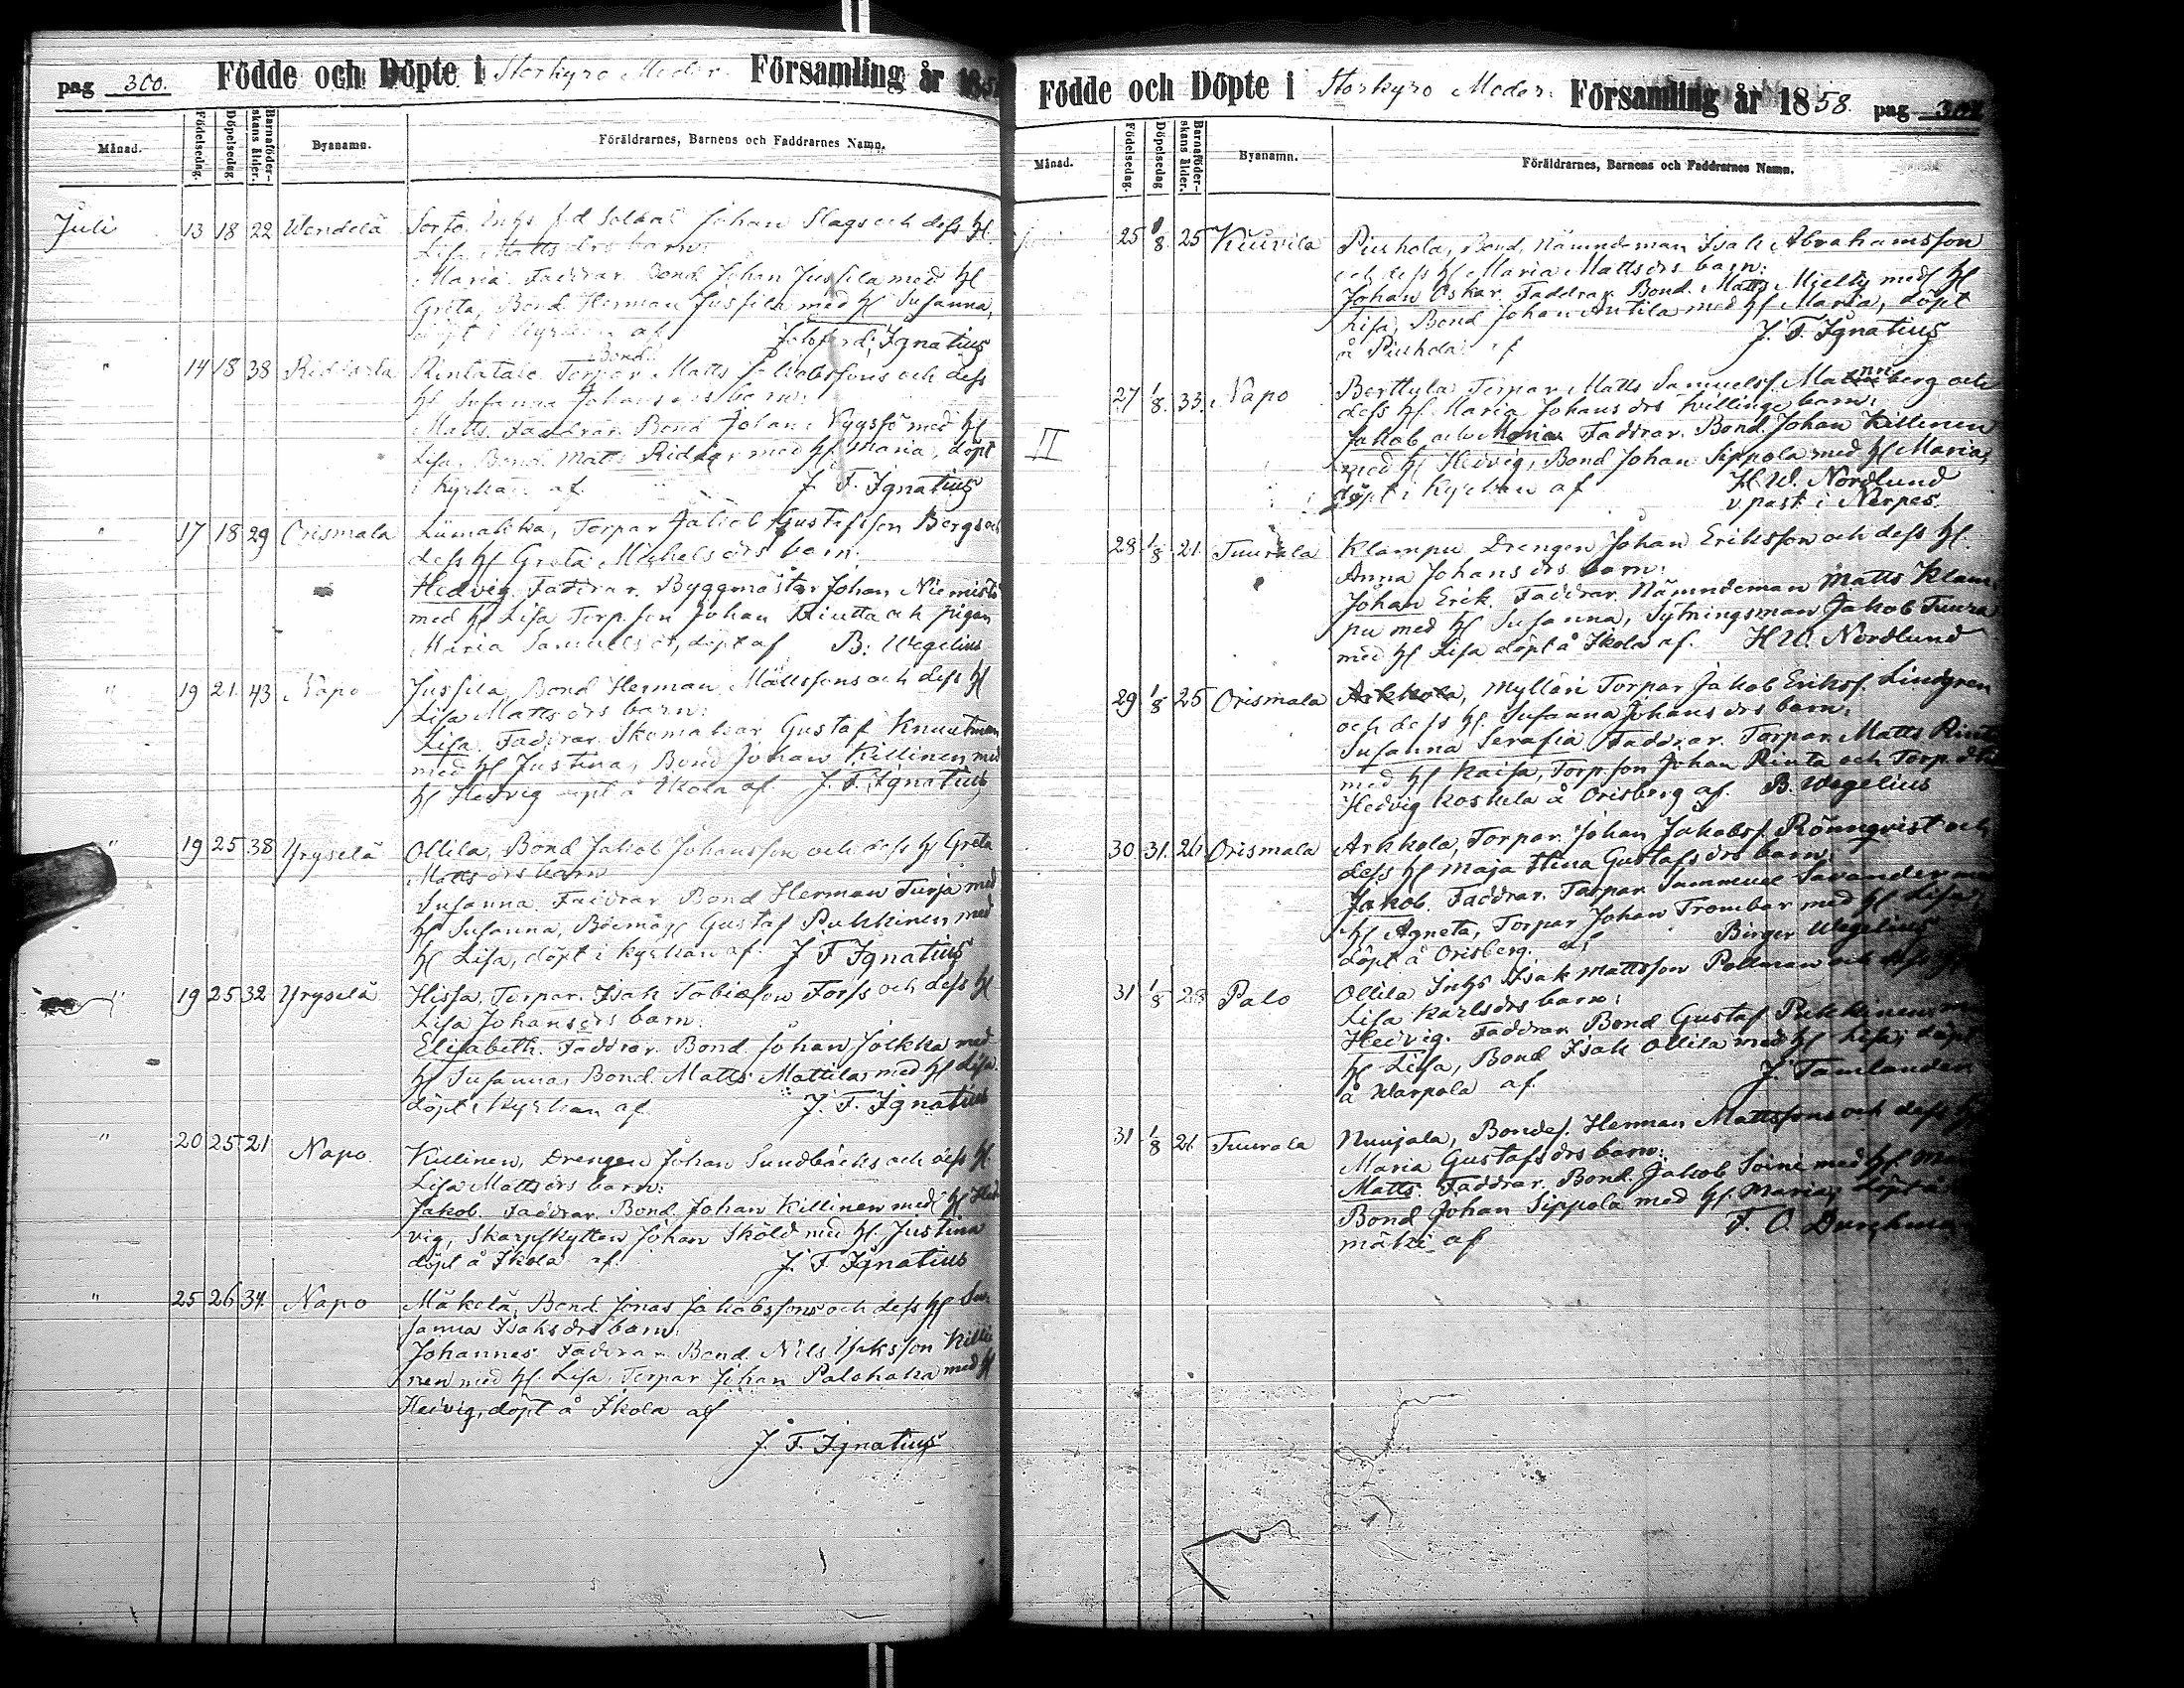 pag 300. Födde och Döpte i Storkyro Moder Församling år 1858
Månad. Födelsedag. Döpelsedag. Barnaföderskans ålder. Byanamn. Föräldrarnes, Barnens och Faddrarnes Namn.
Juli 13 18 22 Wendelä Sorto, Inhs f.d Soldat Johan Slags och dess H
Lisa Mattsdrs barn:
Maria. Faddrar. Bond. Johan Jussila med H
Greta, Bond. Herman Jussila med H Susanna,
döpt i Kyrkan af Joh. Ferd. Ignatius
Bond.
" 14 18 38 Rintatalo. Torpar. Matts Jakobssons och dess
H Susanna Johansdrs barn:
Matts. Faddrar. Bond Johan med H
Lisa, Bond. Matts Ridar med H Maria, döpt
i Kyrkan af. J. F. Ignatius
" 17 18 29 Orismala Liimakka, Torpar Jakob Gustafsson Bergs och
dess H Greta Michelsdrs barn:
Hedvig. Faddrar. Byggmästar Johan Niemistö
med H Lisa Torp.son Johan och pigan
Maria Samuelsdr, döpt af B. Wegelius
" 19 21 43 Napo Jussila, Bond Herman Mattssons och dess H
Lisa Mattsdrs barn:
Lisa. Faddrar. Skomakar Gustaf Knuutman
med H Justina, Bond Johan Killinen med
H Hedvig döpt å Ikola af J. F. Ignatius
" 19 25 38 Yryselä Ollila, Bond Jakob Johansson och dess H Greta
Matts drs barn
Susanna. Faddrar. Bond Herman Turja med
H Susanna, Gustaf Pukkinen med
H Lisa, döpt i Kyrkan af. J F Ignatius
" 19 25 32 Yryselä Hissa, Torpar. Isak Tobiasson Forss och dess H
Lisa Johansdrs barn:
Elisabeth. Faddrar. Bond. Johan Jåkka med
H Susanna, Bond. Matts Mattila med H Lisa.
döpt i Kyrkan af J. F. Ignatius
" 20 25 21 Napo. Killinen, Drengen Johan Sundbäcks och dess H
Lisa Mattsdrs barn:
Jakob. Faddrar. Bond. Johan Killinen med H Hed
vig, Skarpskytten Johan Sköld med H. Justina
döpt å Ikola af. J. F. Ignatius
" 25 26 34. Napo Mäkelä, Bond. Jonas Jakobssons och dess H Su-
sanna Isaksdrs barn:
Johannes. Faddrar. Bond. Nils Isaksson Killi
nen med H. Lisa, Torpar Johan Palohaka med H
Hedvig, döpt å Ikola af
J. F. Ignatius
Födde och Döpte i Storkyro Moder. Församling år 1858. pag 301
Månad. Födelsedag. Döpelsedag Barnaföderskans ålder. Byanamn. Föräldrarnes, Barnens och Faddrarnes Namn.
25 8/8. 25 Kiuvila Piuhola, Bond. Nämndeman Isak Abrahamsson
och dess H Maria Mattsdrs barn:
Johan Oskar. Faddrar. Bond. Matts Mielty med H
Lisa, Bond Johan Antila med H Maria, döpt
å Piuhola af J. F. Ignatius
27 1/8. 33. Napo Berttula Torpar Matts Samuelss. berg och
dess H. Maria Johansdrs tvillinge barn:
II Jakob och Maria. Faddrar. Bond. Johan Killinen
med H Hedvig, Bond Johan Sippola med H Maria,
döpt i Kyrkan af H. W. Nordlund
v past. i Nerpes.
28 1/8 21. Tuurala Klampu Drengen Johan Eriksson och dess H.
Anna Johansdrs barn:
Johan Erik. Faddrar. Nämndeman Matts Klam
pu med H Susanna, Sytningsman Jakob Tuura
med H Lisa döpt å Ikola af. H W. Nordlund
29 1/8 25 Orismala Arkkola, Mylläri Torpar Jakob Erikss. Lindgren
och dess H. Susanna Johansdrs barn:
Susanna Serafia. Faddrar. Torpar. Matts Rinta
med H Kaisa, Torp.son Johan Rinta och Torp.d
Hedvig Koskela å Orisberg af. B. Wegelius
30 31. 26 Orismala Arkkola, Torpar. Johan Jakobss. Rönnqvist och
dess H Maja Stina Gustafsdrs barn:
Jakob. Faddrar. Torpar Sammuel Savander med
H Agneta, Torpar Johan Trombar med H Lisa,
döpt å Orisberg. af Birger Wegelius
31 1/8 28 Palo Ollila Inhs Isak Mattsson Pollman och dess H
Lisa Karlsdrs barn:
Hedvig. Faddrar. Bond Gustaf Pukkinen med
H Lisa, Bond Isak Ollila med H Lisa, döpt
å Warpola af. J. Tamlander
31 1/8 21. Tuurala Nuujala, Bondes. Herman Mattssons och dess H
Maria Gustafsdrs barn:
Matts. Faddrar. Bond. Jakob Soini med H.
Bond Johan Sippola med H. Maria, döpt å
mäki af F. O. Durchman